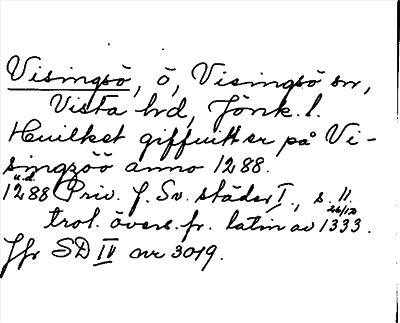 Visingsö, ö, Visingsö sn,
Vista hd, Jönk. l.
Huilket giffuitt er på Vi-
singzöö anno 1288.
u.d.
1288 Priv. f. Sv. städer I, s. 11.
26/12
trol. övers. fr. latin av 1333.
Jfr SD IV nr 3019.